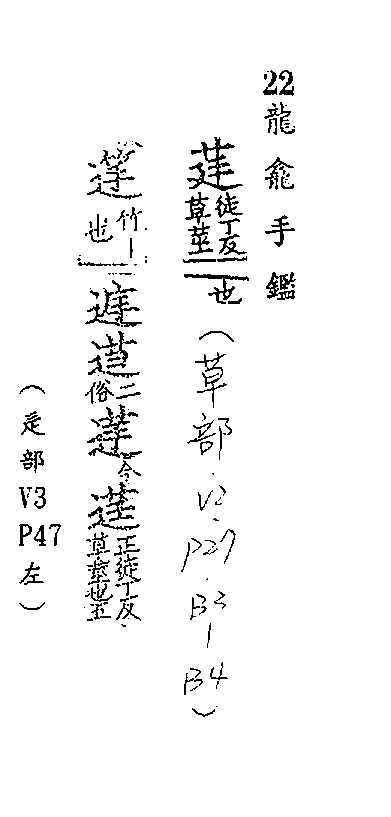 22龍龕手鑑
莛徒丁反草莖也（草部.V2.P27.B3-B4）
竹丨也 二俗 今 正徒丁反草莖也五
（辵部V3P47左）